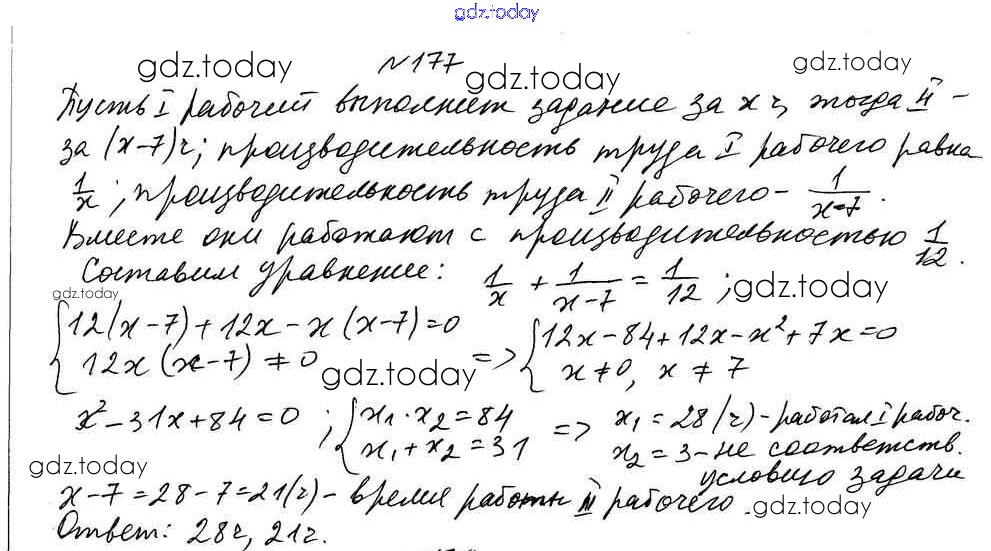 gdz.today
№177
gdz.today gdz.today gdz.today
Пусть I рабочий выполняет задание за x ч, тогда II –
за (x-7)ч; производительность труда I рабочего равна
1/x; производительность труда II рабочего - 1/(x-7).
Вместе они работают с производительностью 1/12.
Составим уравнение: 1/x + 1/(x-7) = 1/12;
gdz.today gdz.today
{12(x-7)+12x-x(x-7)=0 12x(x-7)≠0 => {12x-84+12x-x²+7x=0 x≠0, x≠7
gdz.today
x²-31x+84=0; {x₁·x₂=84 x₁+x₂=31 => x₁=28(ч)-работал I рабоч.
x₂=3-не соответств.
условию задачи
gdz.today
x-7=28-7=21(ч)-время работы II рабочего.
gdz.today
Ответ: 28ч, 21ч.